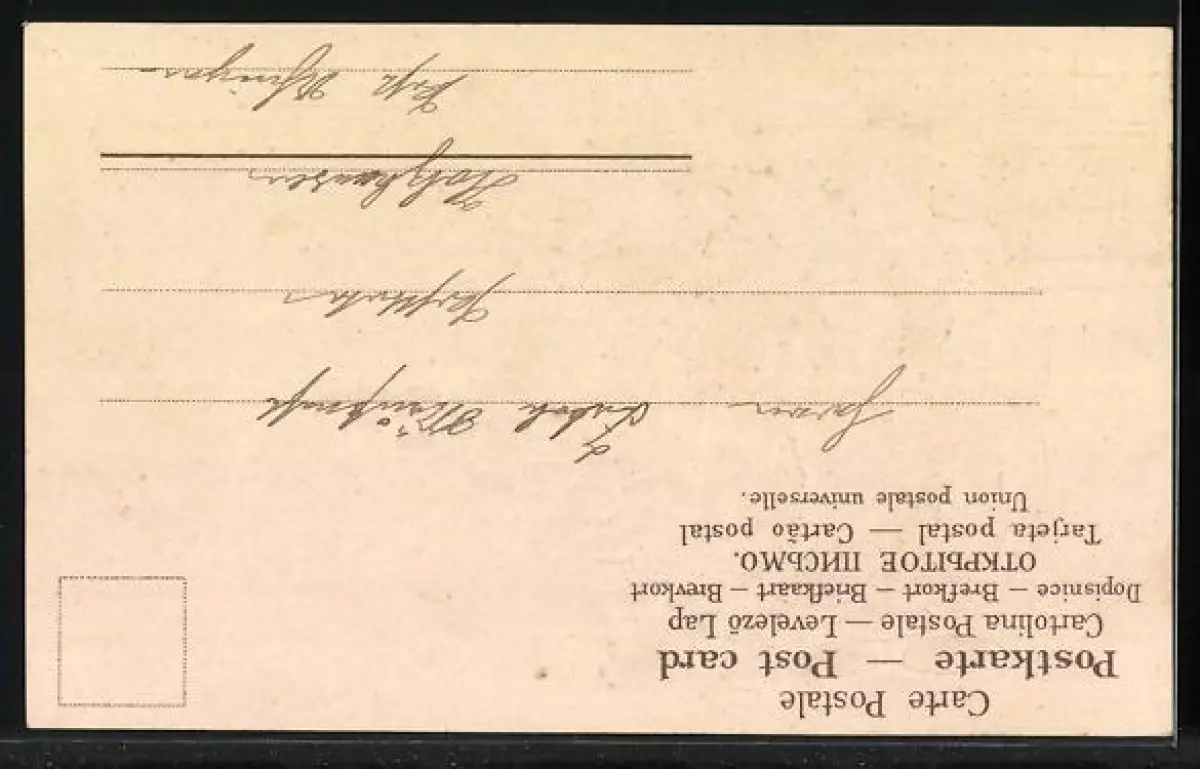 Carte Postale
Postkarte — Post card
Cartolina Postale — Levelező Lap
Dopisnice — Brefkort — Briefkaart — Brevkort
ОТКРЫТОЕ ПИСЬМО.
Tarjeta postal — Cartão postal
Union postale universelle.
Herrn
Holzhausen
Post